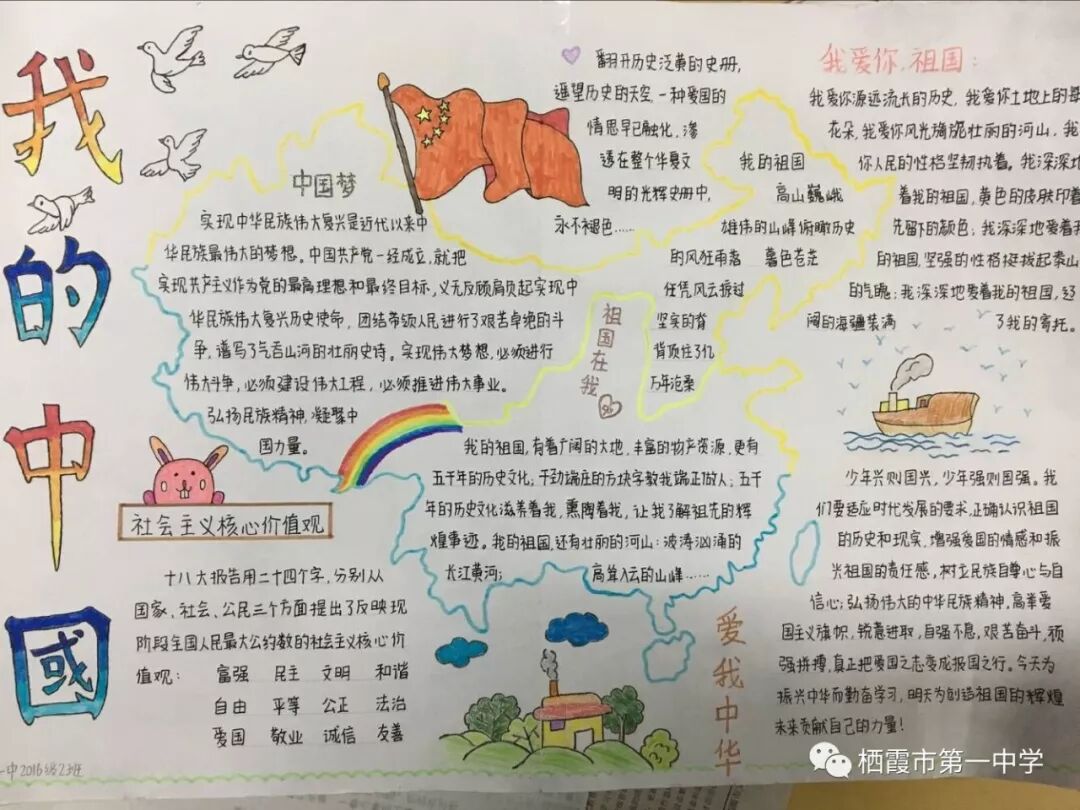 我
的
中
國
中国梦
实现中华民族伟大复兴是近代以来中
华民族最伟大的梦想。中国共产党一经成立,就把
实现共产主义作为党的最高理想和最终目标,义无反顾肩负起实现中
华民族伟大复兴历史使命,团结带领人民进行了艰苦卓绝的斗
争,谱写了气吞山河的壮丽史诗。实现伟大梦想,必须进行
伟大斗争,必须建设伟大工程,必须推进伟大事业。
弘扬民族精神,凝聚中
国力量。
社会主义核心价值观
十八大报告用二十四个字,分别从
国家、社会、公民三个方面提出了反映现
阶段全国人民最大公约数的社会主义核心价
值观: 富强 民主 文明 和谐
自由 平等 公正 法治
爱国 敬业 诚信 友善
一中2016级23班
翻开历史泛黄的史册,
遥望历史的天空,一种爱国的
情思早已融化,渗
透在整个华夏文
明的光辉史册中,
永不褪色……
我的祖国
高山巍峨
雄伟的山峰俯瞰历史
的风狂雨落 暮色苍茫
任凭风云掠过
坚实的脊
背顶住了亿
万年沧桑
祖国在我
我的祖国,有着广阔的大地,丰富的物产资源,更有
五千年的历史文化,千劲端庄的方块字教我端正做人;五千
年的历史文化滋养着我,熏陶着我,让我了解祖先的辉
煌事迹。我的祖国,还有壮丽的河山:波涛汹涌的
长江黄河; 高耸入云的山峰……
爱我中华
我爱你,祖国:
我爱你源远流长的历史,我爱你土地上的每
花朵,我爱你风光旖旎壮丽的河山,我
你人民的性格坚韧执着。我深深地
着我的祖国,黄色的皮肤印着
先留下的颜色;我深深地爱着我
的祖国,坚强的性格挺拔起泰山
的气魄;我深深地爱着我的祖国,辽
阔的海疆装满 了我的寄托。
少年兴则国兴,少年强则国强。我
们要适应时代发展的要求,正确认识祖国
的历史和现实,增强爱国的情感和振
兴祖国的责任感,树立民族自尊心与自
信心;弘扬伟大的中华民族精神,高举爱
国主义旗帜,锐意进取,自强不息,艰苦奋斗,顽
强拼搏,真正把爱国之志变成报国之行。今天为
振兴中华而勤奋学习,明天为创造祖国的辉煌
未来贡献自己的力量!
栖霞市第一中学